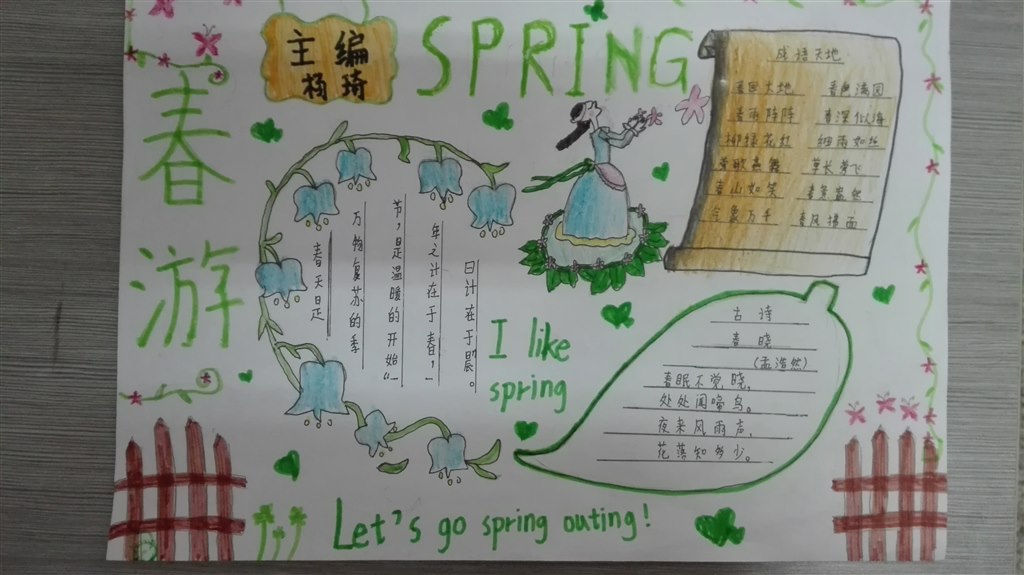 春游
主编
杨琦
SPRING
成语天地
春回大地 春色满园
春雨阵阵 春深似海
柳绿花红 细雨如丝
莺歌燕舞 草长莺飞
春山如笑 春意盎然
象万千 春风拂面
春天是
万物复苏的季
节，是温暖的开始“一
年之计在于春，一
日计在于晨。
I like
spring
古诗
春晓
(孟浩然)
春眠不觉晓，
处处闻啼鸟。
夜来风雨声，
花落知多少。
Let's go spring outing!